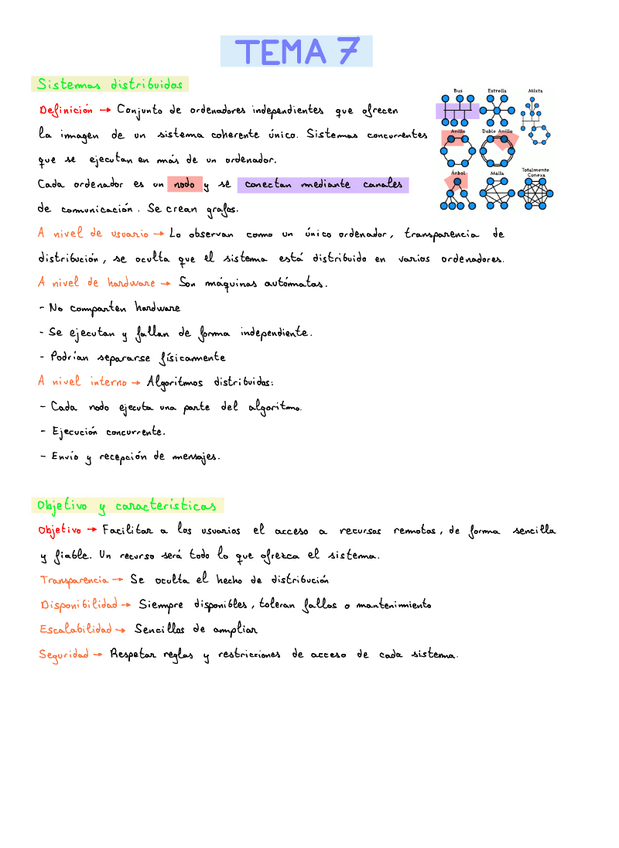 TEMA 7
Sistemas distribuidos
Definición → Conjunto de ordenadores independientes que ofrecen
la imagen de un sistema coherente único. Sistemas concurrentes
que se ejecutan en más de un ordenador.
Cada ordenador es un nodo y se conectan mediante canales
de comunicación. Se crean grafos.
Bus Estrella Mixta
Anillo Doble Anillo
Árbol Malla Totalmente
Conexa
A nivel de usuario → Lo observan como un único ordenador, transparencia de
distribución, se oculta que el sistema está distribuido en varios ordenadores.
A nivel de hardware → Son máquinas autómatas.
- No comparten hardware
- Se ejecutan y fallan de forma independiente.
- Podrían separarse físicamente
A nivel interno → Algoritmos distribuidos:
- Cada nodo ejecuta una parte del algoritmo.
- Ejecución concurrente.
- Envío y recepción de mensajes.
Objetivo y características
Objetivo → Facilitar a los usuarios el acceso a recursos remotos, de forma sencilla
y fiable. Un recurso será todo lo que ofrezca el sistema.
Transparencia → Se oculta el hecho de distribución
Disponibilidad → Siempre disponibles, toleran fallos o mantenimiento
Escalabilidad → Sencillos de ampliar
Seguridad → Respetar reglas y restricciones de acceso de cada sistema.